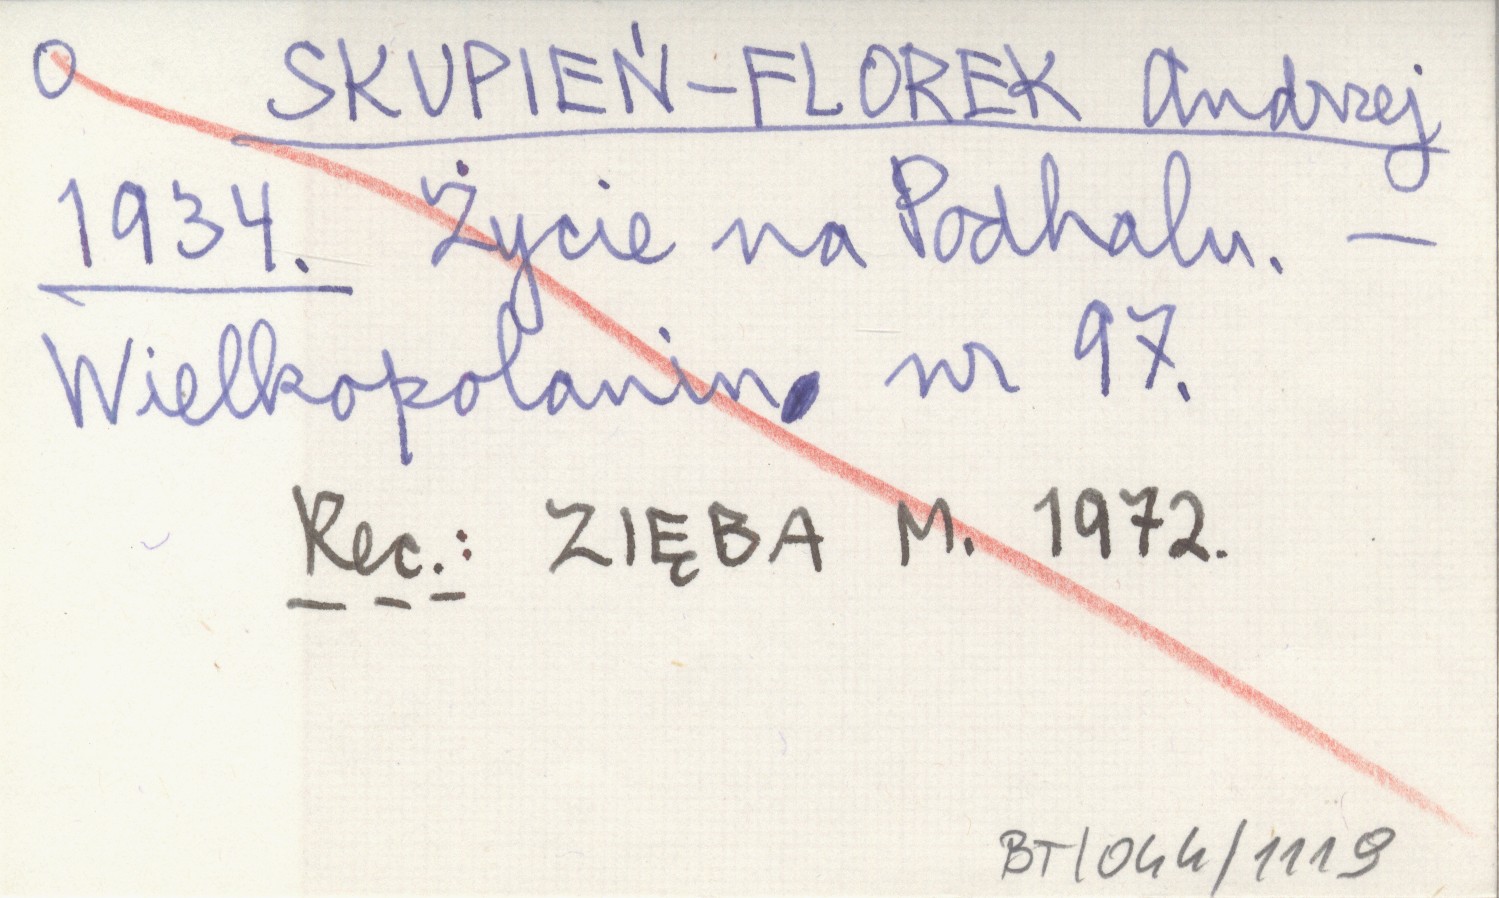 O SKUPIEŃ-FLOREK Andrzej
1934. Życie na Podhalu. —
Wielkopolanin. nr 97.
Rec.: ZIĘBA M. 1972.
BT/044/1119